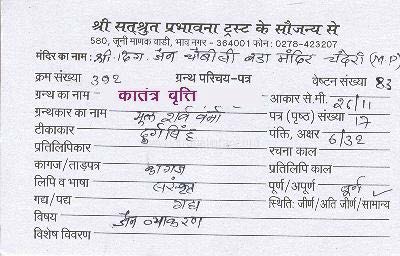 श्री सत्श्रुत प्रभावना ट्रस्ट के सौजन्य से
580, जूनी माणक वाडी, भाव नगर - 364001 फोन: 0278-423207
मंदिर का नाम : श्री दिग. जैन चौबीसी बडा मंदिर चंदेरी (M.P)
क्रम संख्या 392 ग्रन्थ परिचय-पत्र वेष्टन संख्या 83
ग्रन्थ का नाम कातंत्र वृत्ति आकार से.मी. 26/11
ग्रन्थकार का नाम मूल शर्व वर्मा पत्र (पृष्ठ) संख्या 17
टीकाकार दुर्गसिंह पंक्ति, अक्षर 6/32
प्रतिलिपिकार रचना काल
कागज/ताड़पत्र कागज प्रतिलिपि काल
लिपि व भाषा संस्कृत पूर्ण/अपूर्ण पूर्ण
गद्य/पद्य गद्य स्थिति: जीर्ण/अति जीर्ण/सामान्य
विषय जैन व्याकरण
विशेष विवरण